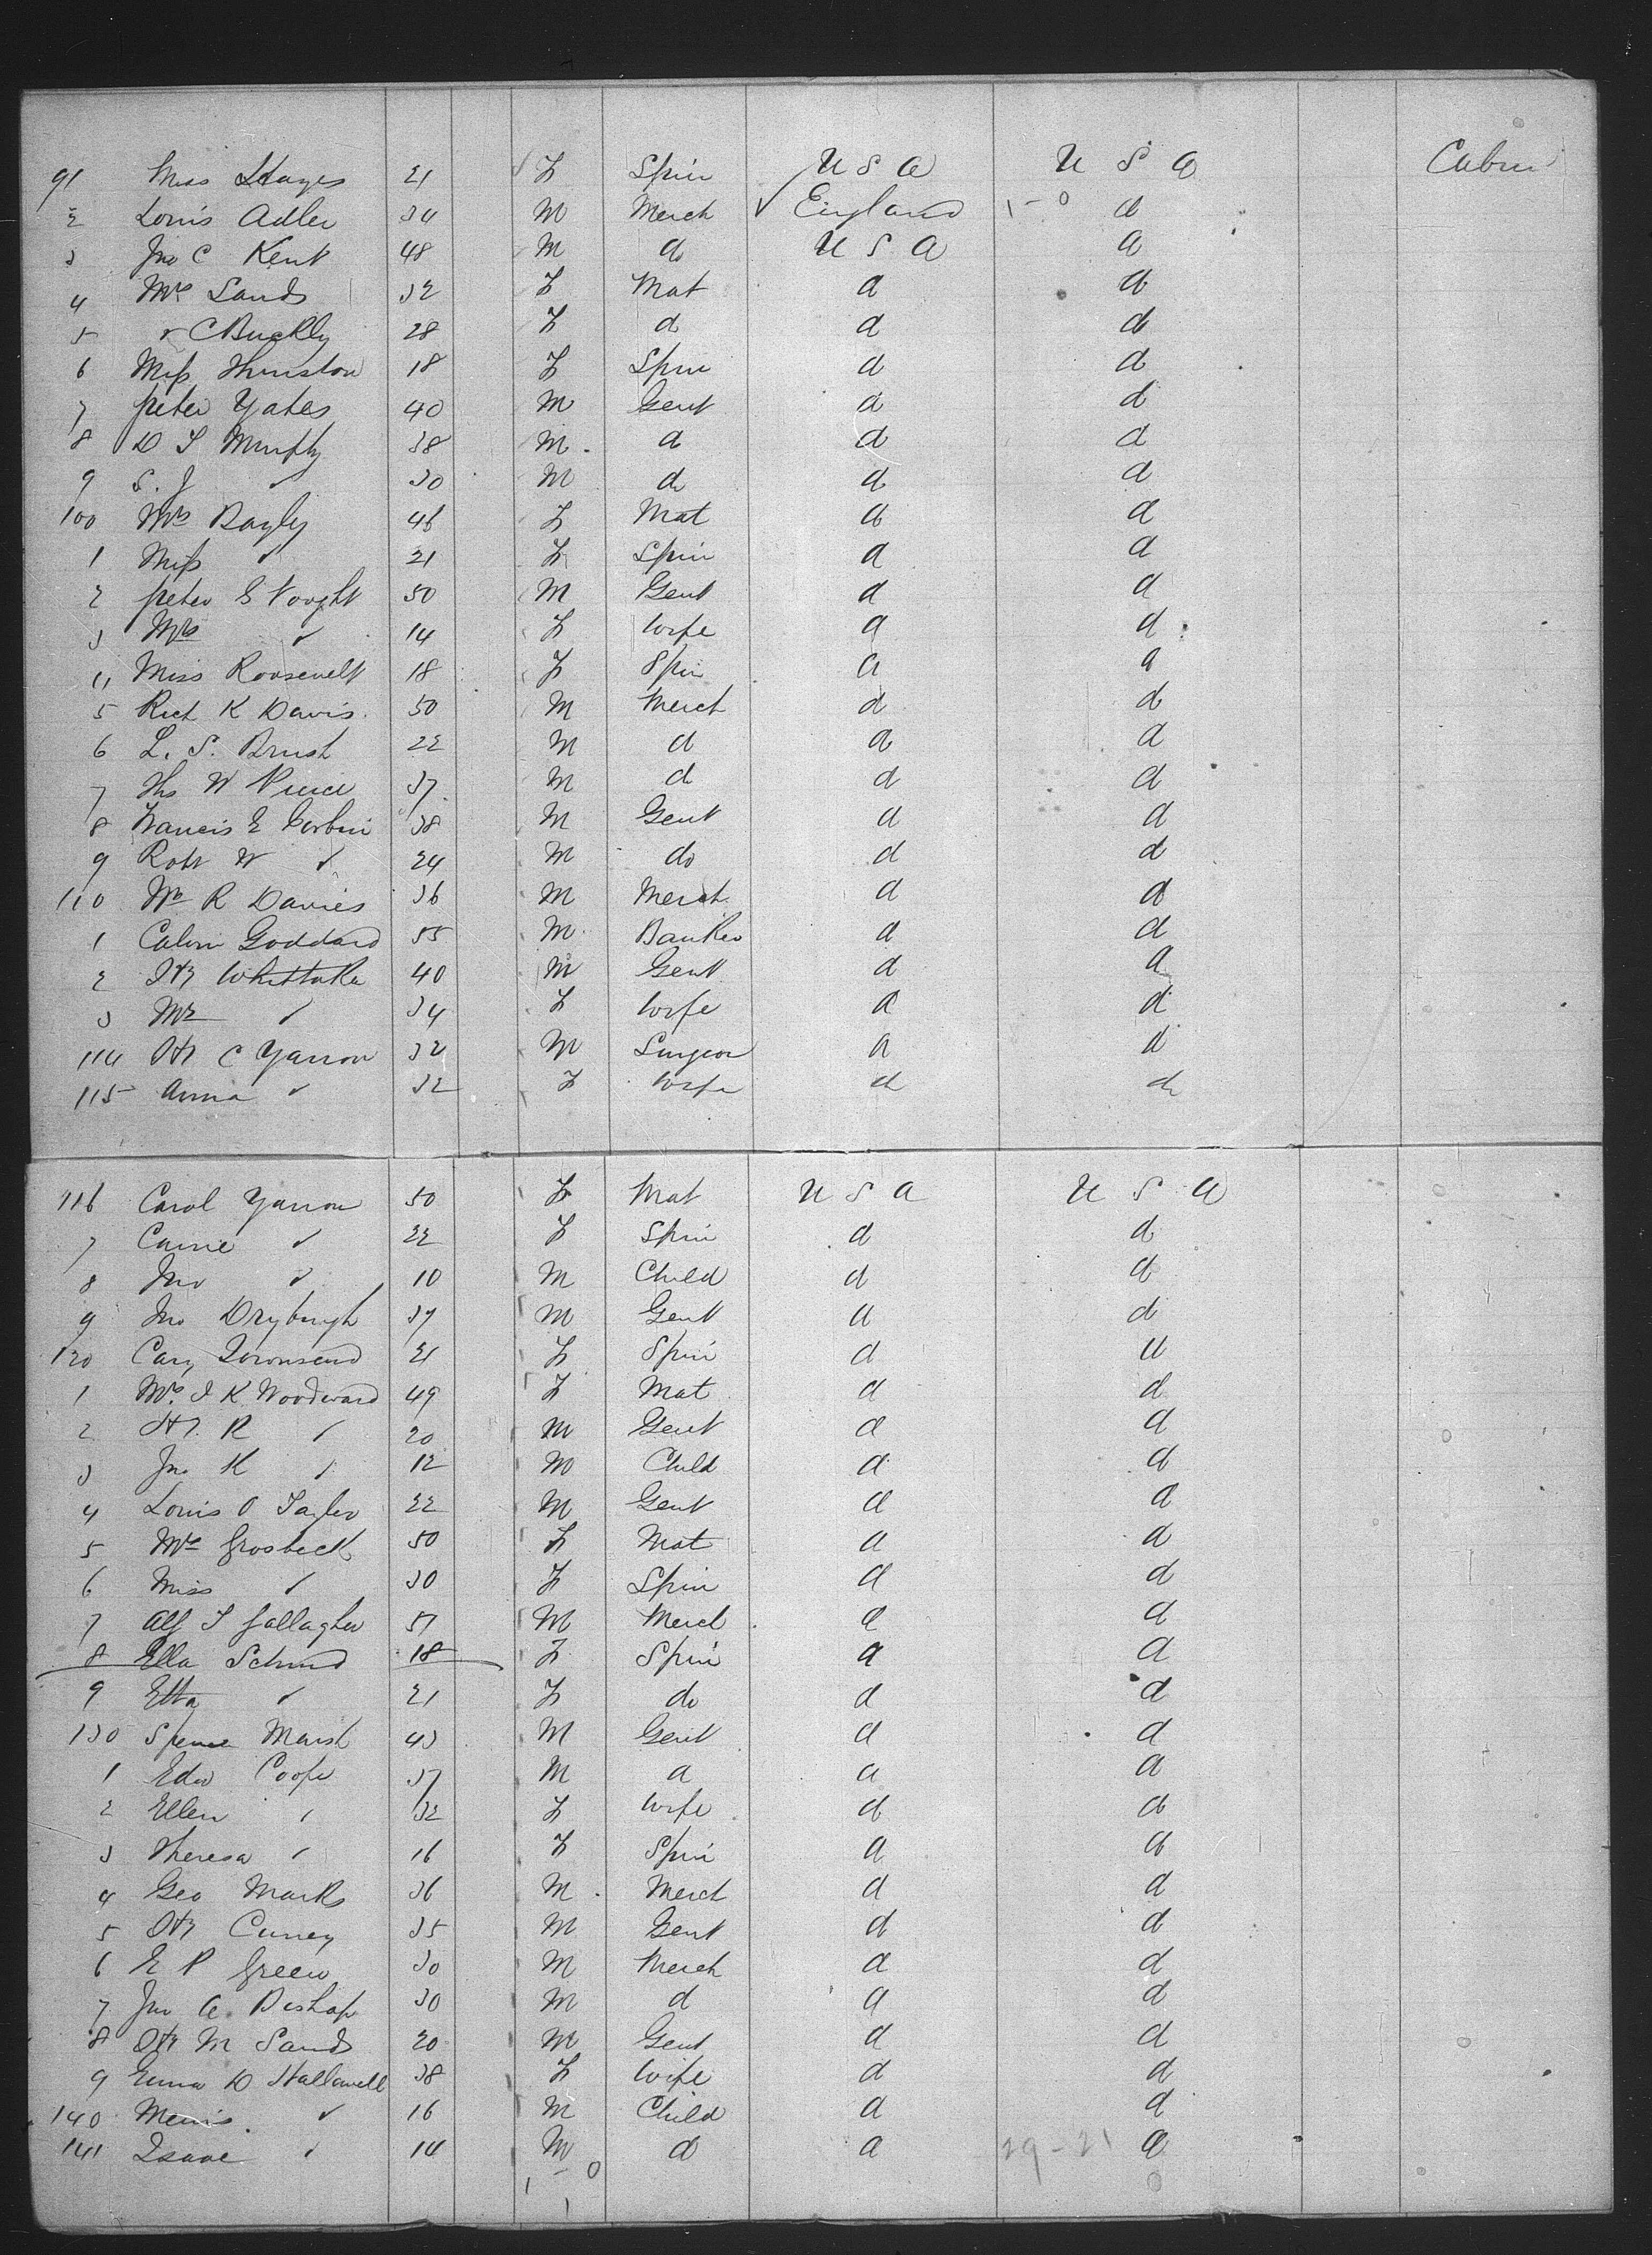 91 Miss Hayes 21 F Spin U S A U S A Cabin
2 Louis Adler 34 M Merch England 1-0 d
3 Jno C Kent 48 M do U S A d
4 Mrs Sands 32 F Mat d d
5 " C Buckly 28 F d d d
6 Miss Thurston 18 F Spin d d
7 Peter Yates 40 M Gent d d
8 D T Murphy 38 M d d d
9 S. J " 30 M do d d
100 Mrs Bagly 46 F Mat d d
1 Miss " 21 F Spin d d
2 Peter S Vought 50 M Gent d d
3 Mrs " 14 F Wife d d
4 Miss Roosevelt 18 F Spin d d
5 Rich K Davis 50 M Merch d d
6 L. S. Brush 22 M d d d
7 Ths W Pierce 37 M d d d
8 Francis E Corbin 38 M Gent d d
9 Robt W " 24 M do d d
110 Wm R Davies 36 M Merch d d
1 Calvin Goddard 55 M Banker d d
2 Hy Whittake 40 M Gent d d
3 Mrs " 34 F Wife d d
114 Hy C Yarrow 32 M Surgeon d d
115 Anna " 32 F Wife d d
116 Carol Yarrow 50 F Mat U S A U S A
7 Carrie " 22 F Spin d d
8 Jno " 10 M Child d d
9 Jno Dryburgh 39 M Gent d d
120 Cary Townsend 21 F Spin d d
1 Mrs J K Woodward 49 F Mat d d
2 Hy. R " 20 M Gent d d
3 Jno K " 12 M Child d d
4 Louis O Taylor 22 M Gent d d
5 Mrs Grosbeck 50 F Mat d d
6 Miss " 30 F Spin d d
7 Alf T Gallagher 51 M Merch d d
8 Ella Schmid 18 F Spin d d
9 Etta " 21 F do d d
130 Spence Marsh 43 M Gent d d
1 Edw Coope 37 M d d d
2 Ellen " 32 F Wife d d
3 Theresa " 16 F Spin d d
4 Geo Marks 36 M Merch d d
5 Hy Currey 35 M Gent d d
6 E P Green 30 M Merch d d
7 Jno A. Bishop 30 M d d d
8 Hy M Sands 20 M Gent d d
9 Emma D Hallowell 38 F Wife d d
140 " 16 M Child d d
141 Isaac " 14 M d d 29-21 d
1 - 0
1